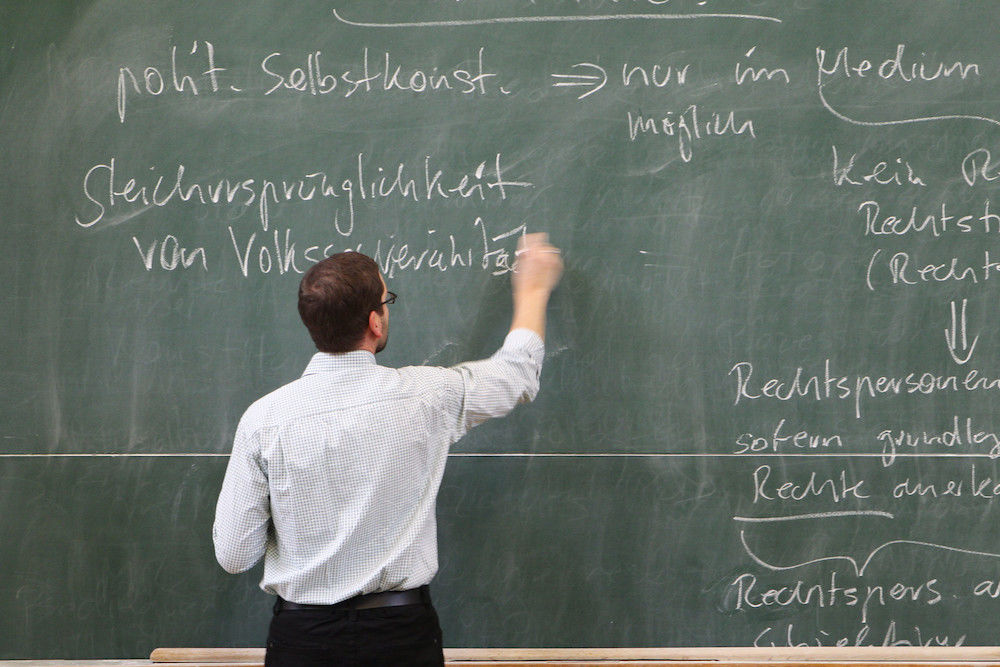 polit. Selbstkonst. ⇒ nur im Medium
möglich
Gleichursprünglichkeit
von Volkssouveränität
Kein
(Rechts
Rechtspersonen
sofern grundleg
Rechte anerka
Rechtspers.